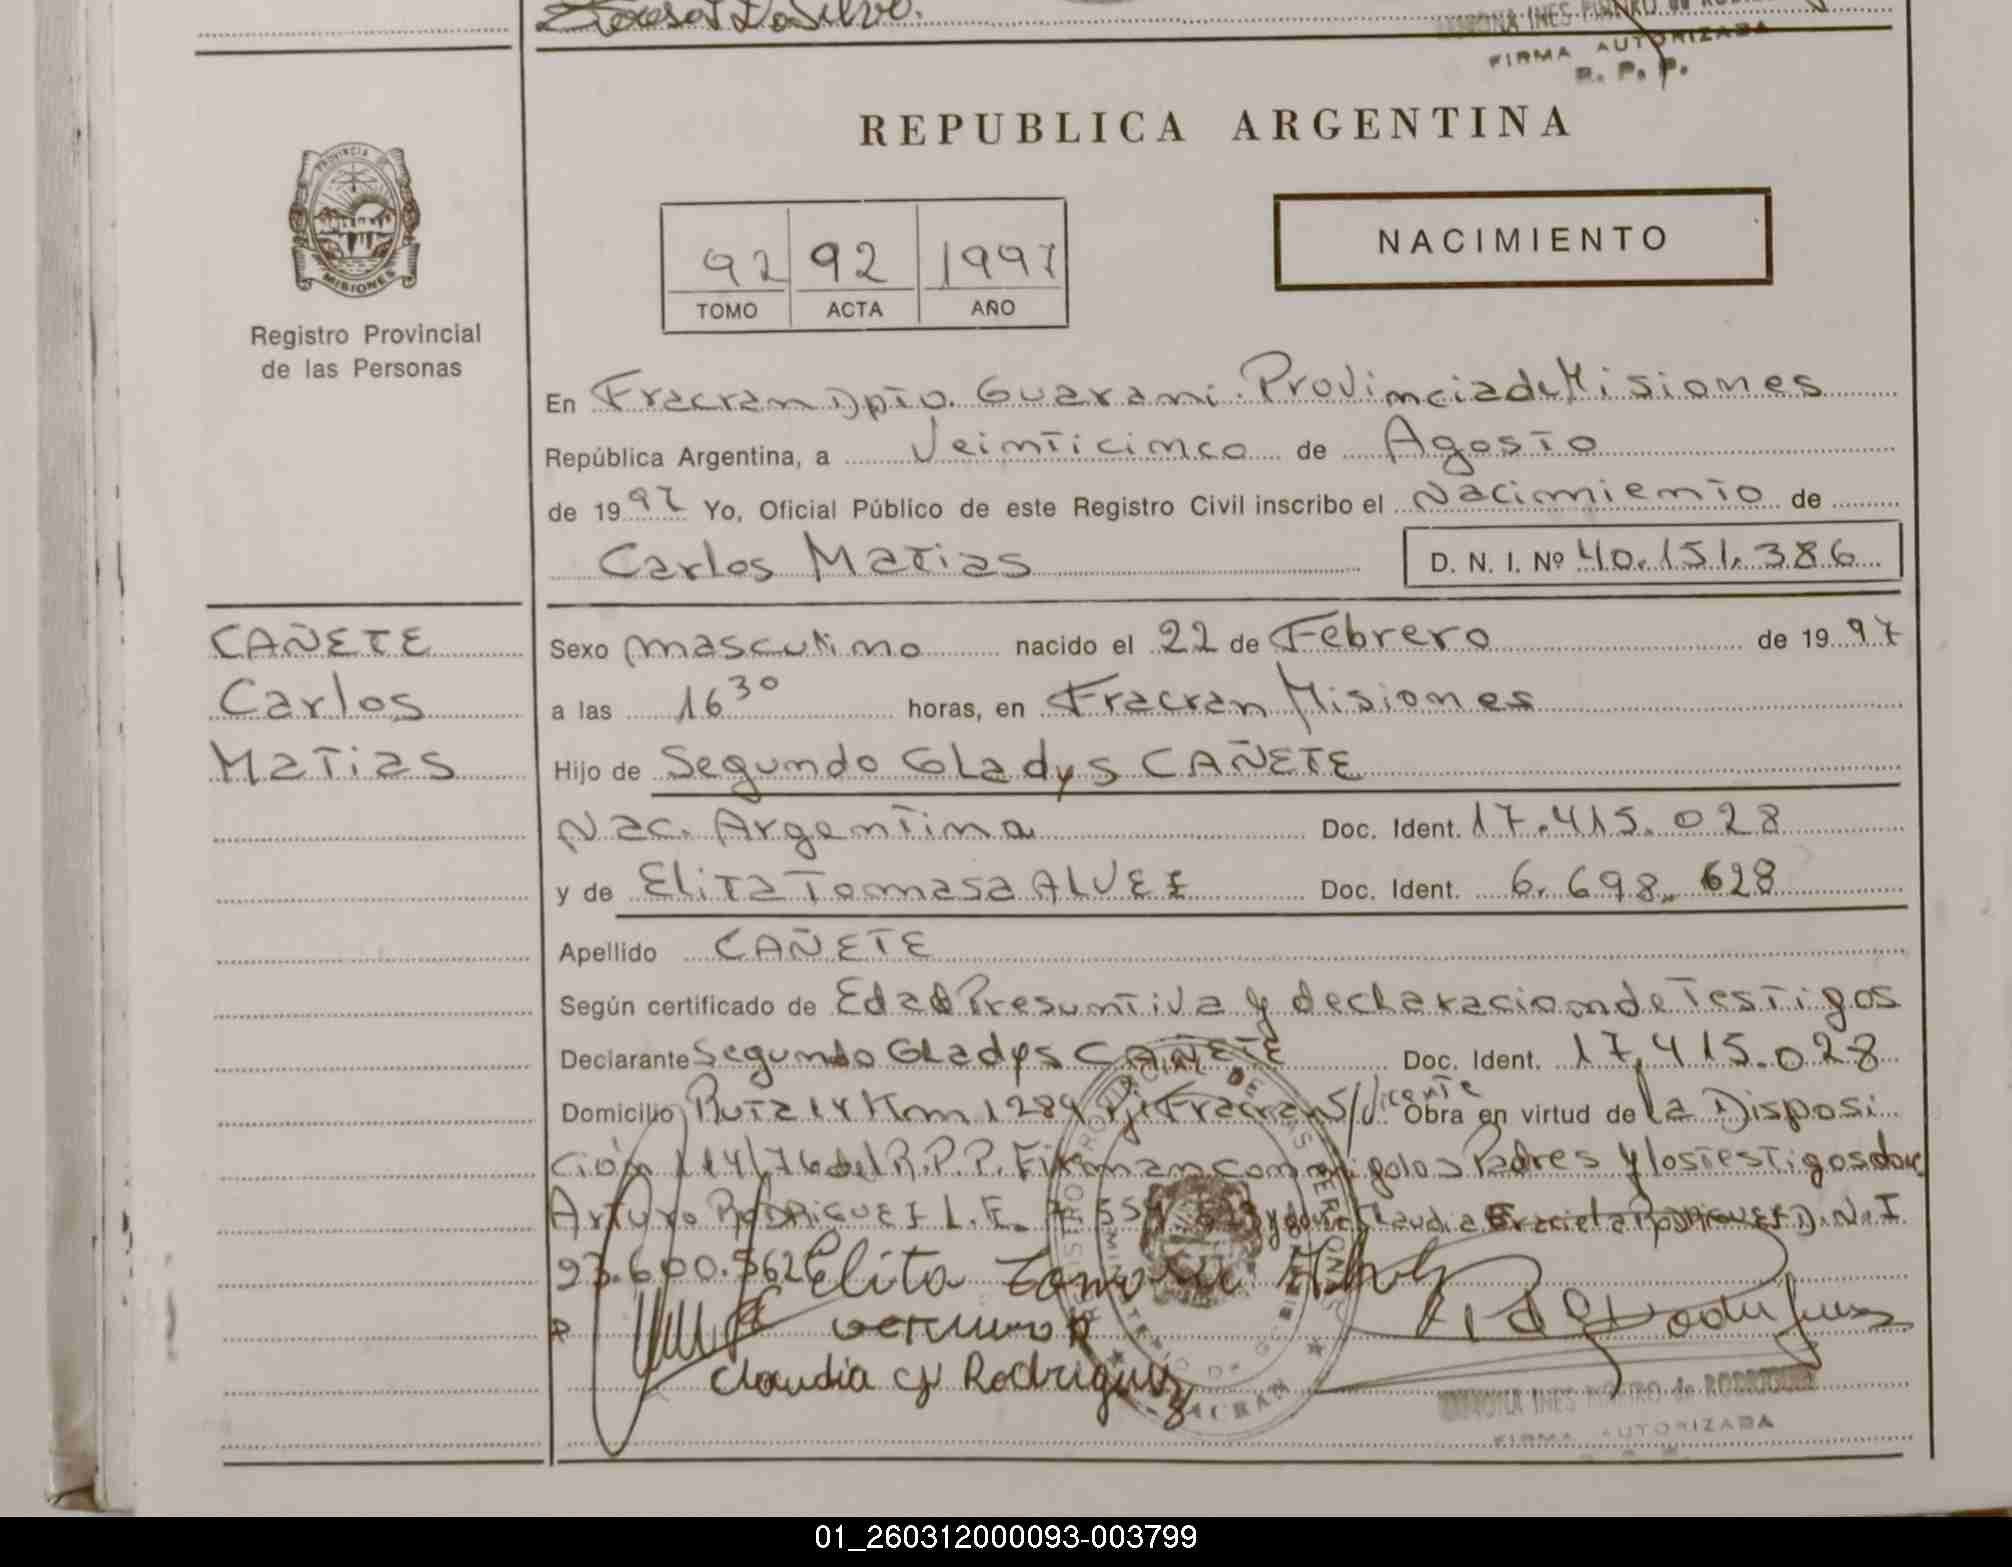 Teresa DaSilva.
FIRMA AUTORIZADA
R. P. P.
PROVINCIA DE
MISIONES
Registro Provincial
de las Personas
REPUBLICA ARGENTINA
92 92 1997
TOMO ACTA AÑO
NACIMIENTO
En Fracran Dpto. Guarani. Provincia de Misiones
República Argentina, a Veinticinco de Agosto
de 1997 Yo, Oficial Público de este Registro Civil inscribo el Nacimiento de
Carlos Matias D. N. I. Nº 40.151.386
CAÑETE
Carlos
Matias
Sexo masculino nacido el 22 de Febrero de 1997
a las 16 30 horas, en Fracran Misiones
Hijo de Segundo Gladys CAÑETE
Nac. Argentina Doc. Ident. 17.415.028
y de Elita Tomasa ALVEZ Doc. Ident. 6.698.628
Apellido CAÑETE
Según certificado de Edad Presuntiva y declaracion de Testigos
Declarante Segundo Gladys CAÑETE Doc. Ident. 17.415.028
Domicilio Ruta 14 Km 1289 Pje Fracran S/Vicente Obra en virtud de la Disposi
ción 114/76 del R.P.P. Firman conmigo los Padres y los testigos don
Arturo RODRIGUEZ L.E. 7.559. y doña Claudia Graciela RODRIGUEZ D.N.I
93.600.562 Elita Tomasa
Claudia G Rodriguez
RAMONA INES PIÑEIRO de RODRIGUEZ
FIRMA AUTORIZADA
01_260312000093-003799